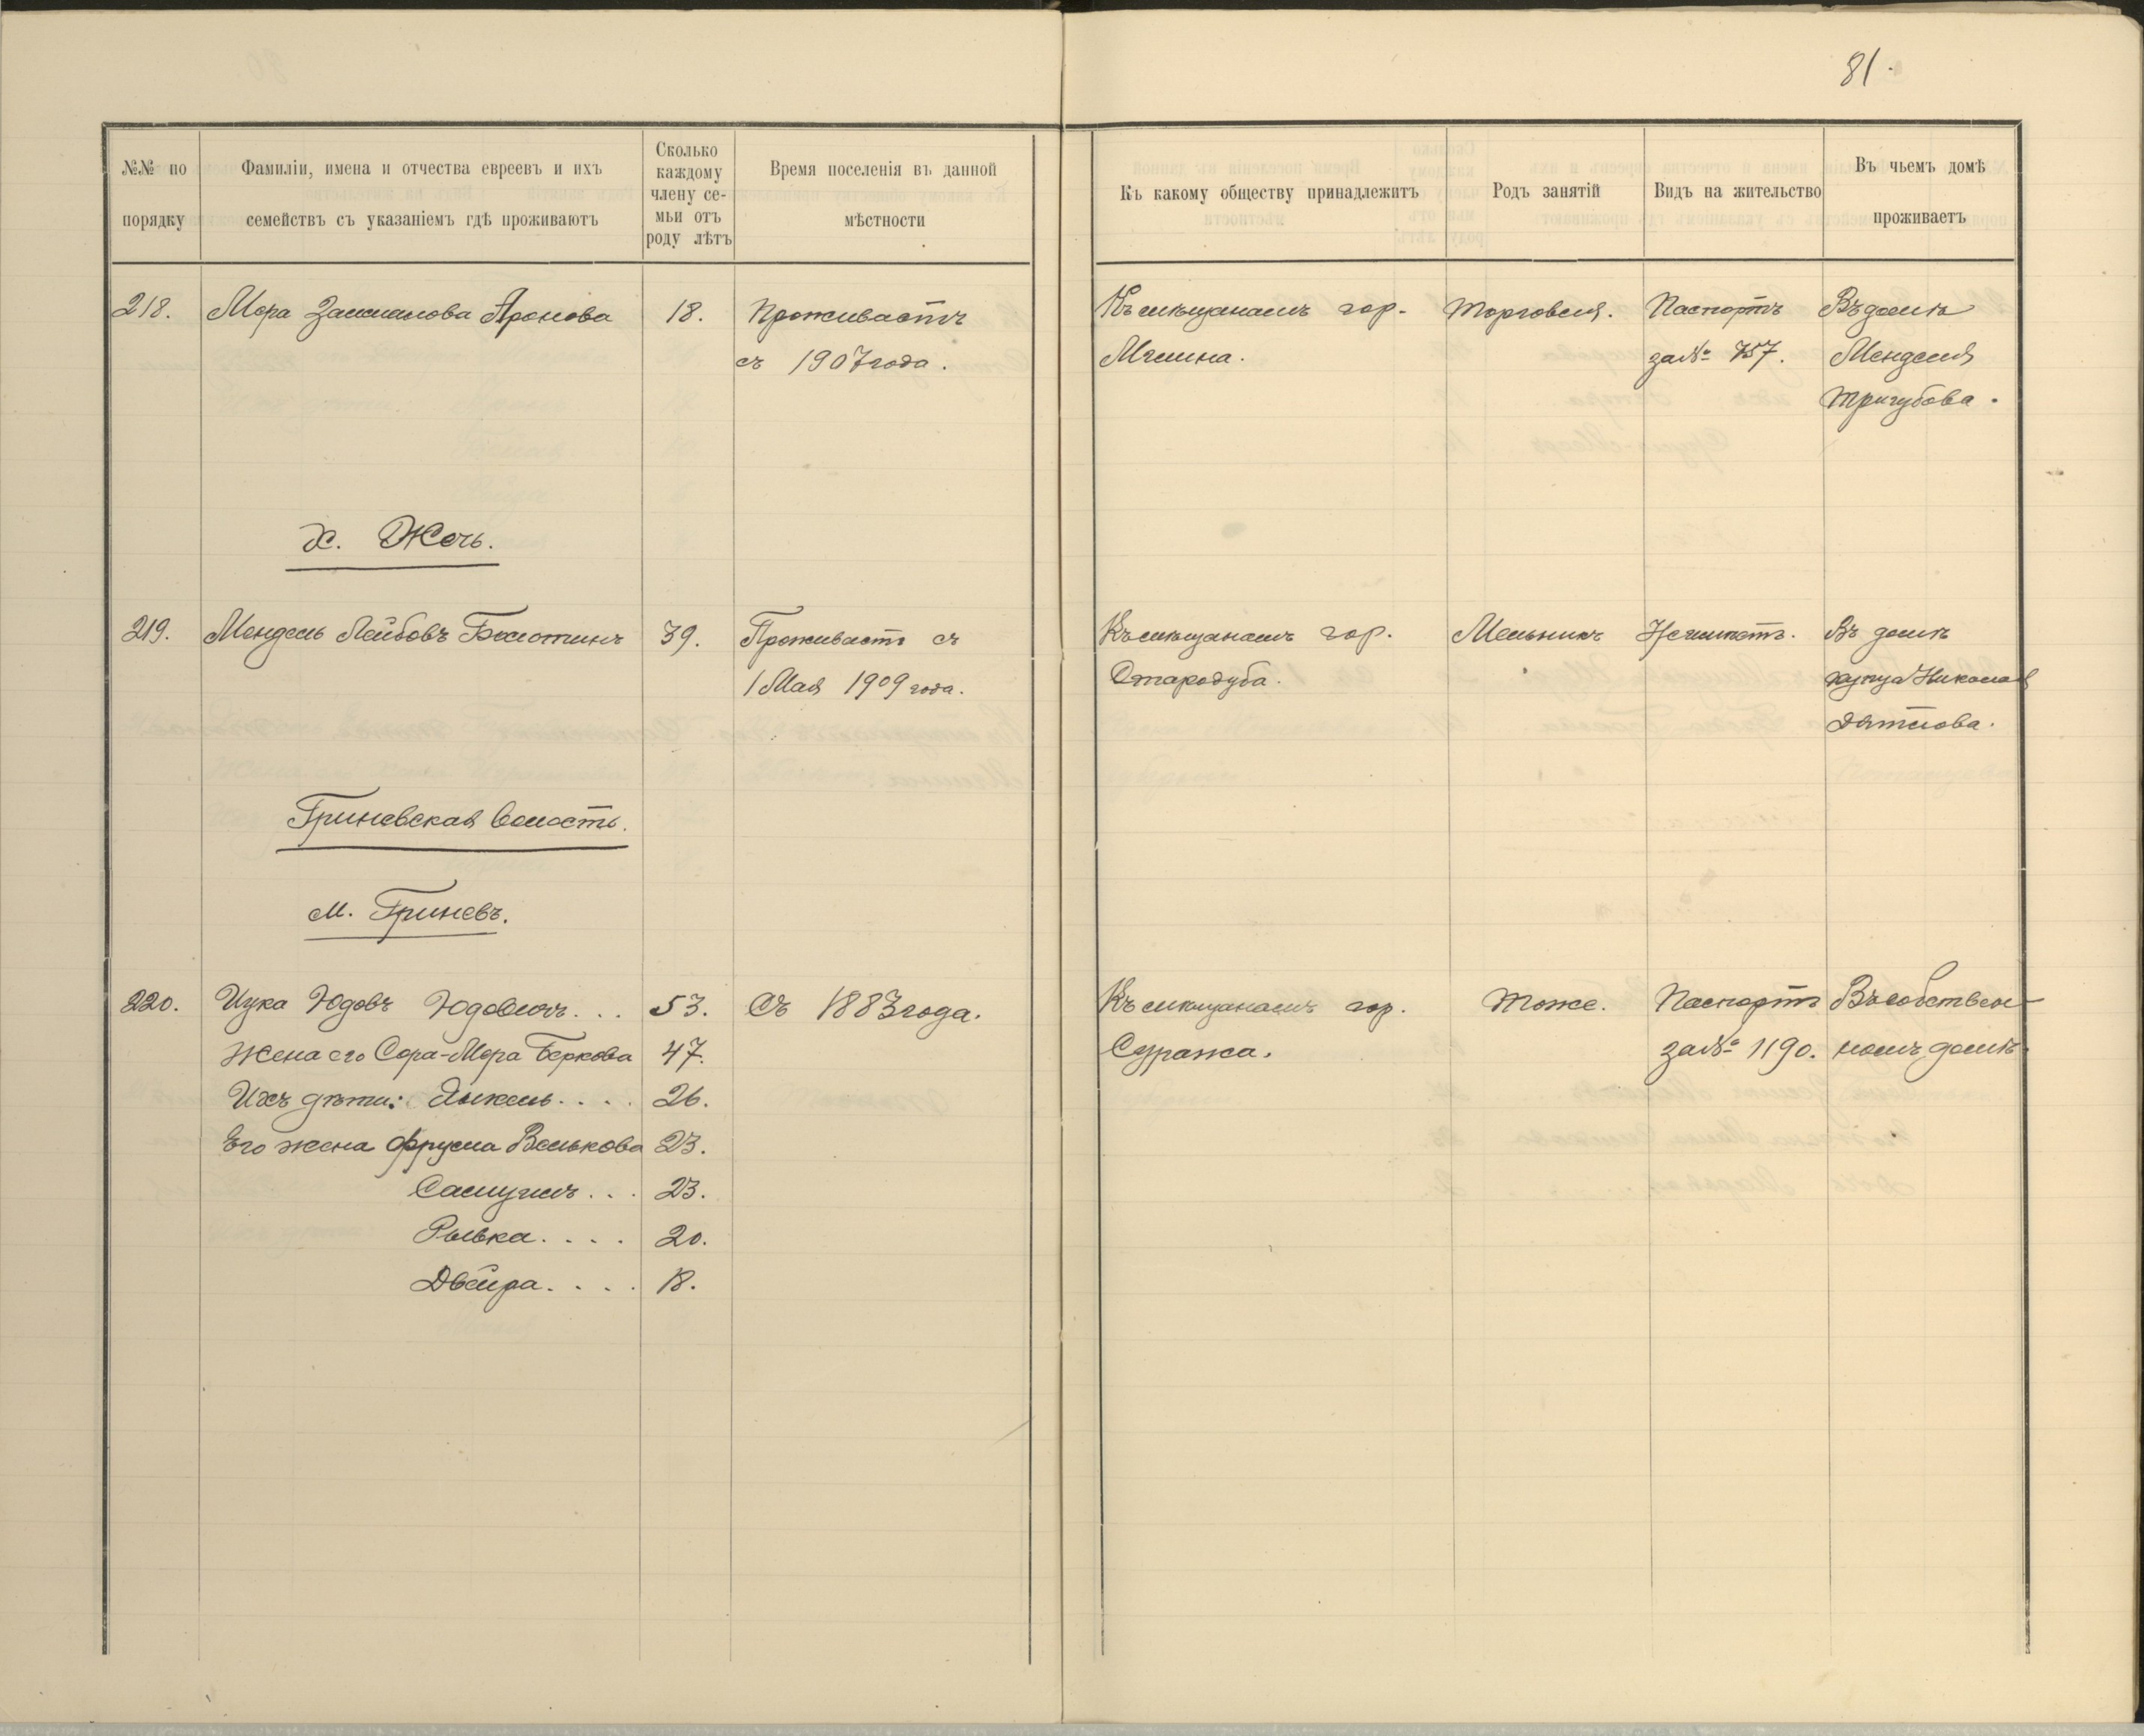 81.
№№ по порядку
Фамиліи, имена и отчества евреевъ и ихъ семействъ съ указаніемъ гдѣ проживаютъ
Сколько каждому члену семьи отъ роду лѣтъ
Время поселенія въ данной мѣстности
Къ какому обществу принадлежитъ
Родъ занятій
Видъ на жительство
Въ чьемъ домѣ проживаетъ
218.
Мера Залманова Аронова
18.
Проживаетъ
съ 1907 года.
Къ мѣщанамъ гор.
Мглина.
Торговля.
Паспортъ
за № 757.
Въ домѣ
Менделя
Тригубова.
х. Жечь.
219.
Мендель Лейбовъ Болотинъ
39.
Проживаетъ съ
1 Мая 1909 года.
Къ мѣщанамъ гор.
Стародуба.
Мельникъ
Неимѣетъ.
Въ домѣ
купца Николая
Дятлова.
Гриневская волость.
м. Гриневъ.
220.
Ицка Юдовъ Юдович. . .
53.
Съ 1883 года.
Къ мѣщанамъ гор.
Суража.
Тоже.
Паспортъ
за № 1190.
Въ собствен-
номъ домѣ.
Жена его Сора-Мера Беркова
47.
Ихъ дѣти: Янкель. . . .
26.
Его жена Фрума Велькова
23.
Самуилъ. . .
23.
Рывка. . . .
20.
Двейра. . . .
18.